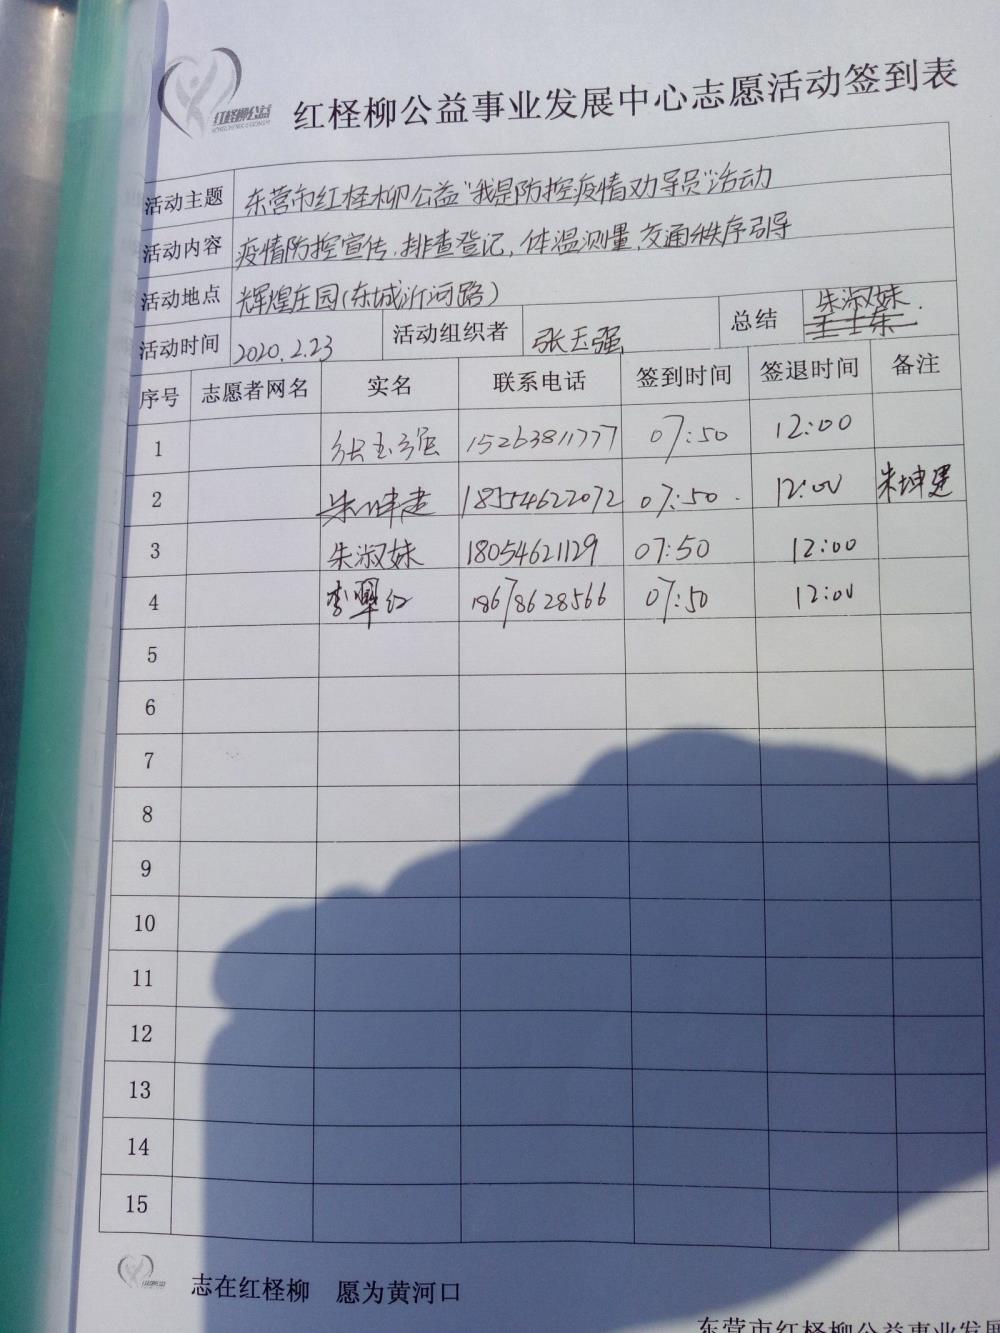 红柽柳公益
红柽柳公益事业发展中心志愿活动签到表
活动主题 东营市红柽柳公益"我是防控疫情劝导员"活动
活动内容 疫情防控宣传,排查登记,体温测量,交通秩序引导
活动地点 辉煌庄园(东城沂河路)
活动时间 2020.2.23 活动组织者 张玉强 总结 朱淑妹
序号 志愿者网名 实名 联系电话 签到时间 签退时间 备注
1 张玉强 15263811777 07:50 12:00
2 朱坤建 18554622072 07:50 12:00 朱坤建
3 朱淑妹 18054621129 07:50 12:00
4 李翠红 18678628566 07:50 12:00
5
6
7
8
9
10
11
12
13
14
15
志在红柽柳 愿为黄河口
东营市红柽柳公益事业发展